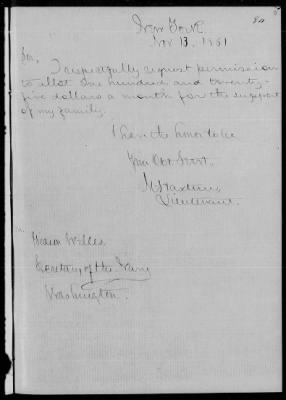 New York.
Nov 13, 1861
Sir,
I respectfully request permission
to allot one hundred and twenty-
five dollars a month for the support
of my family.
I have the honor to be
Your Obt. Servt.
Lieutenant.
Gideon Welles
Secretary of the Navy
Washington.